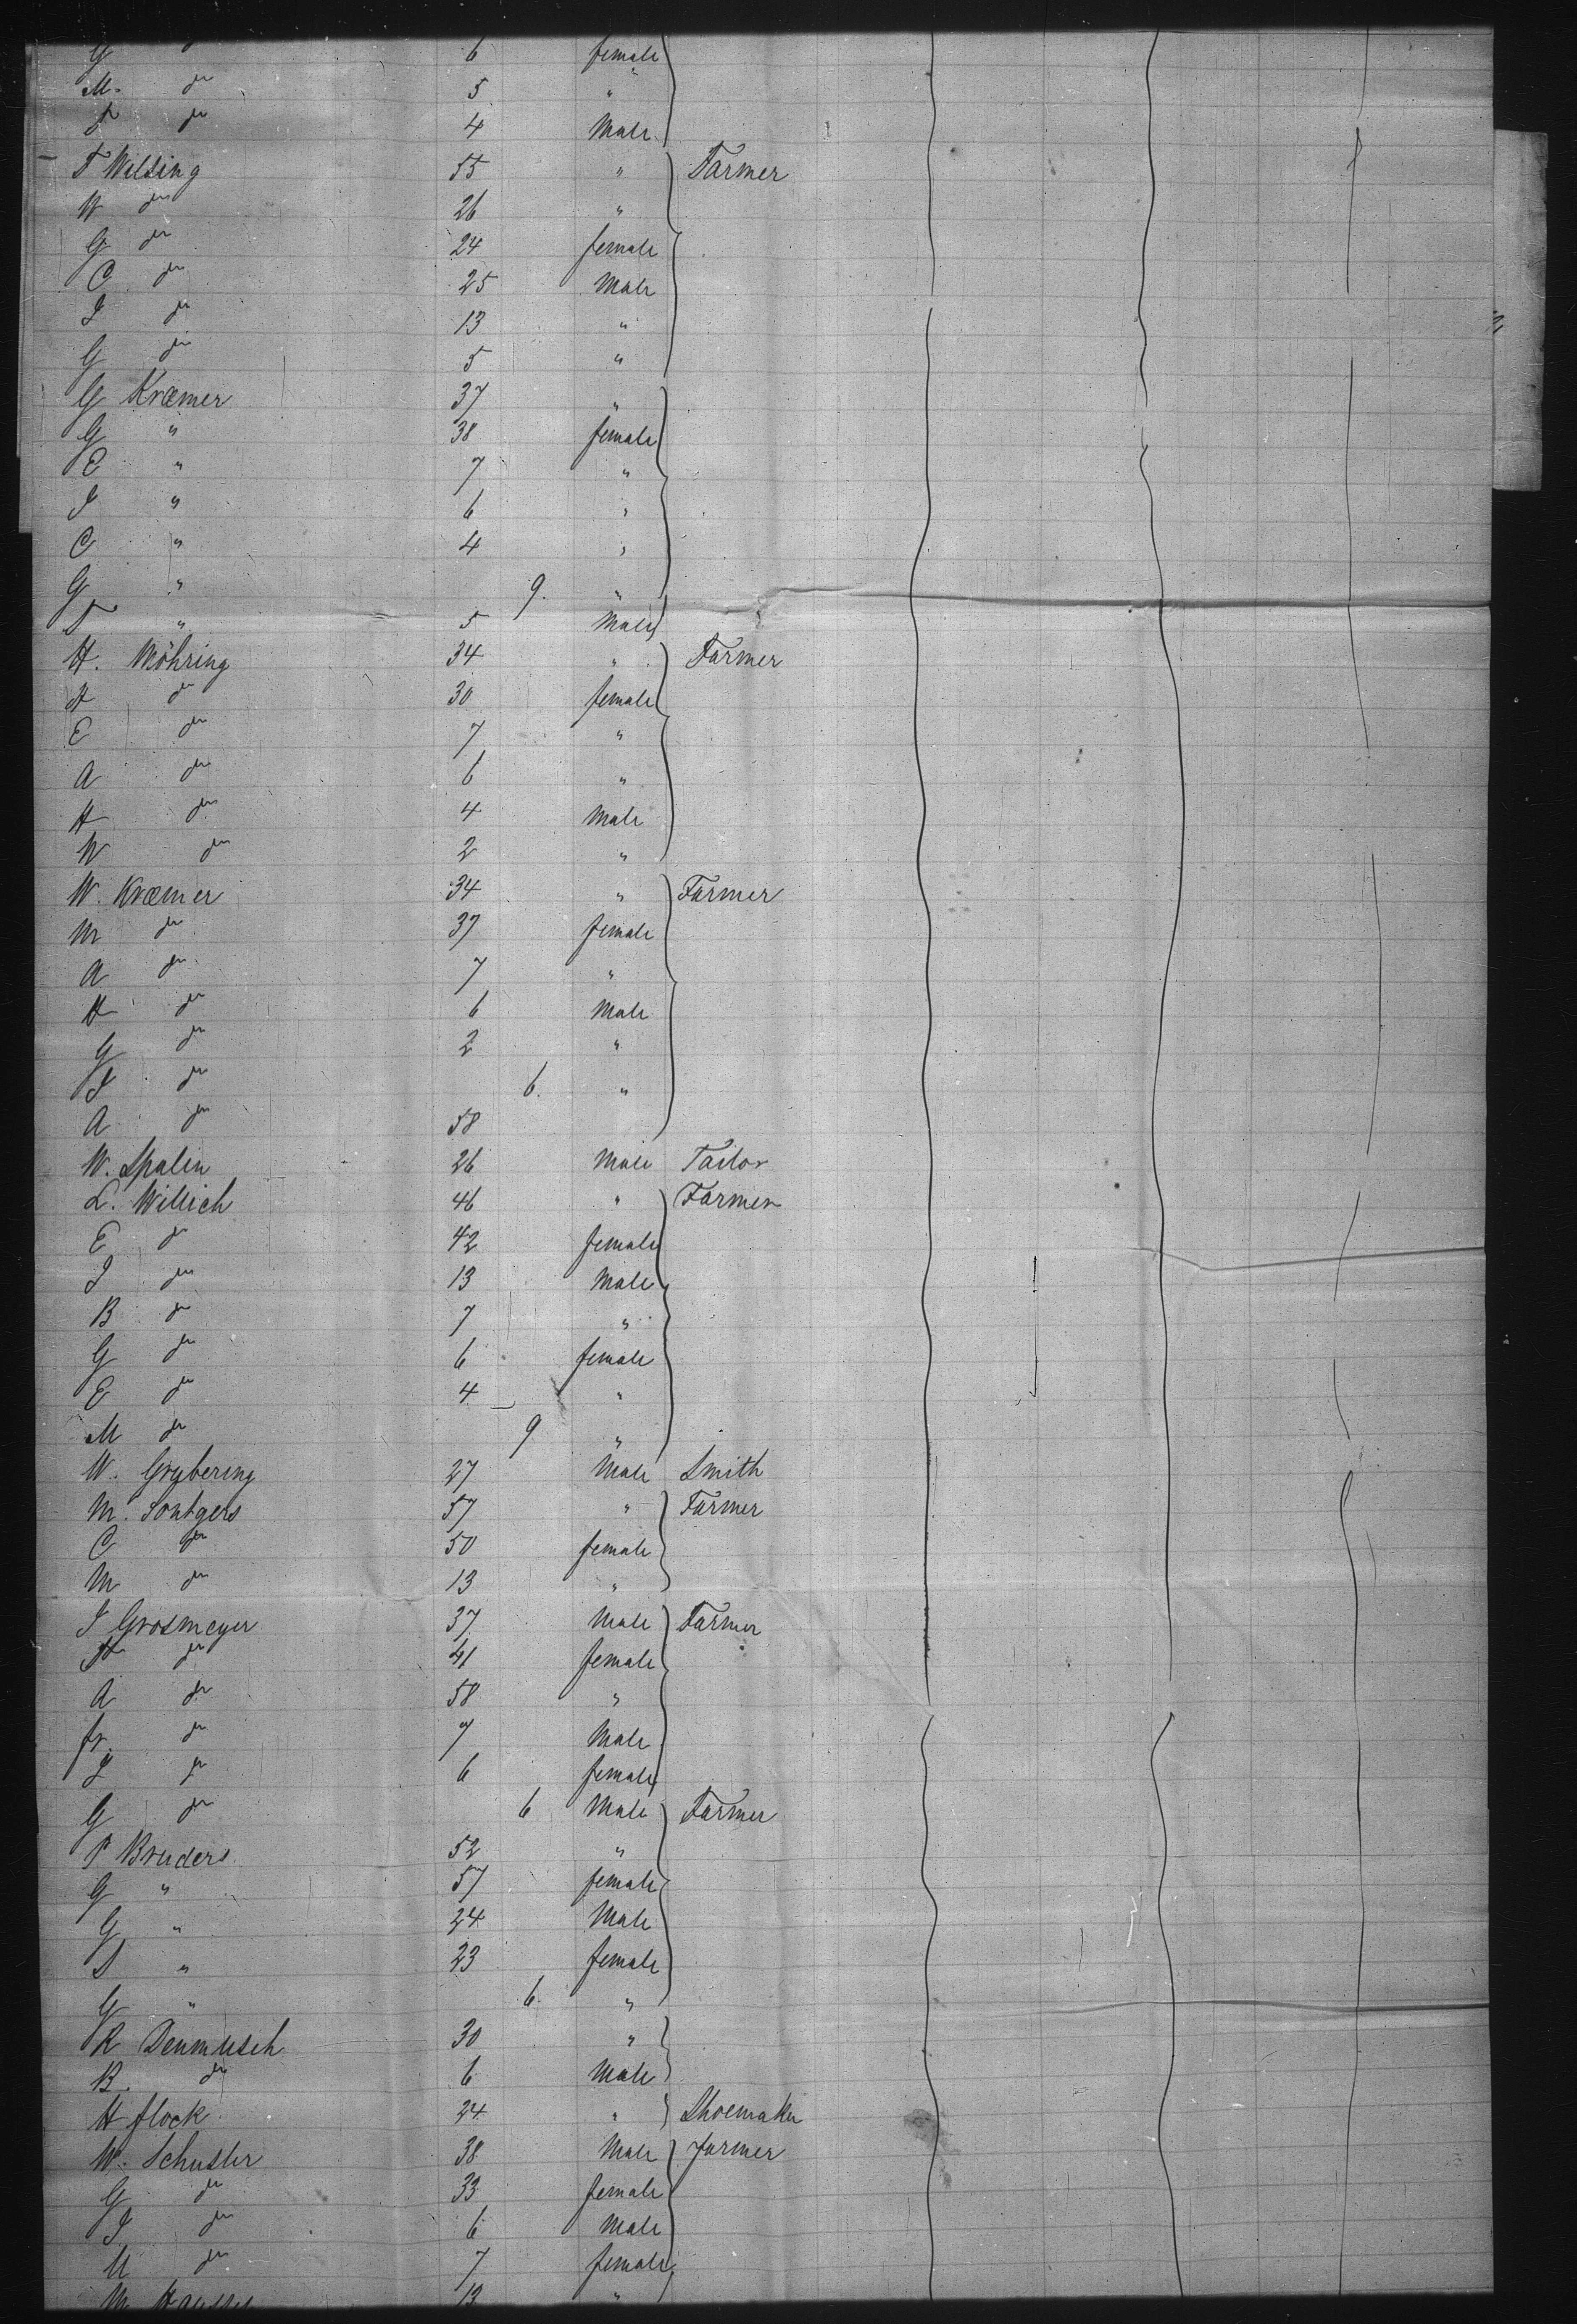 G do 6 female
M. do 5 "
F do 4 Male
F Welsing 55 " Farmer
W do 26 "
G do 24 female
C do 25 Male
J do 13 "
G do 5 "
G Kræmer 37 "
G " 38 female
E " 7 "
J " 6 "
C " 4 "
G " 9. "
F " 5 Male
H. Möhring 34 " Farmer
H do 30 female
E do 7 "
A do 6 "
H do 4 Male
W do 2 "
W. Kræmer 34 " Farmer
M do 37 female
A do 7 "
H do 6 Male
G do 2 "
J do 6. "
A do 58
W. Spalin 26 Male Tailor
L. Willich 46 " Farmer
E do 42 female
J do 13 Male
B do 7 "
G do 6 female
E do 4 "
M do 9 "
W. Grybering 27 Male Smith
M. Sontgers 57 " Farmer
C do 50 female
M do 13 "
J Grosmeyer 37 Male Farmer
do 41 female
A do 58 "
fr. do 7 Male
L do 6 female
G do 6 Male Farmer
P Bruders 52 "
G " 57 female
G " 24 Male
S " 23 female
G " 6. "
R Denmusch 30 "
B. do 6 Male
H flock 24 " Shoemaker
W. Schuster 38 Male Farmer
G do 33 female
J do 6 Male
M do 7 female
M 13 "